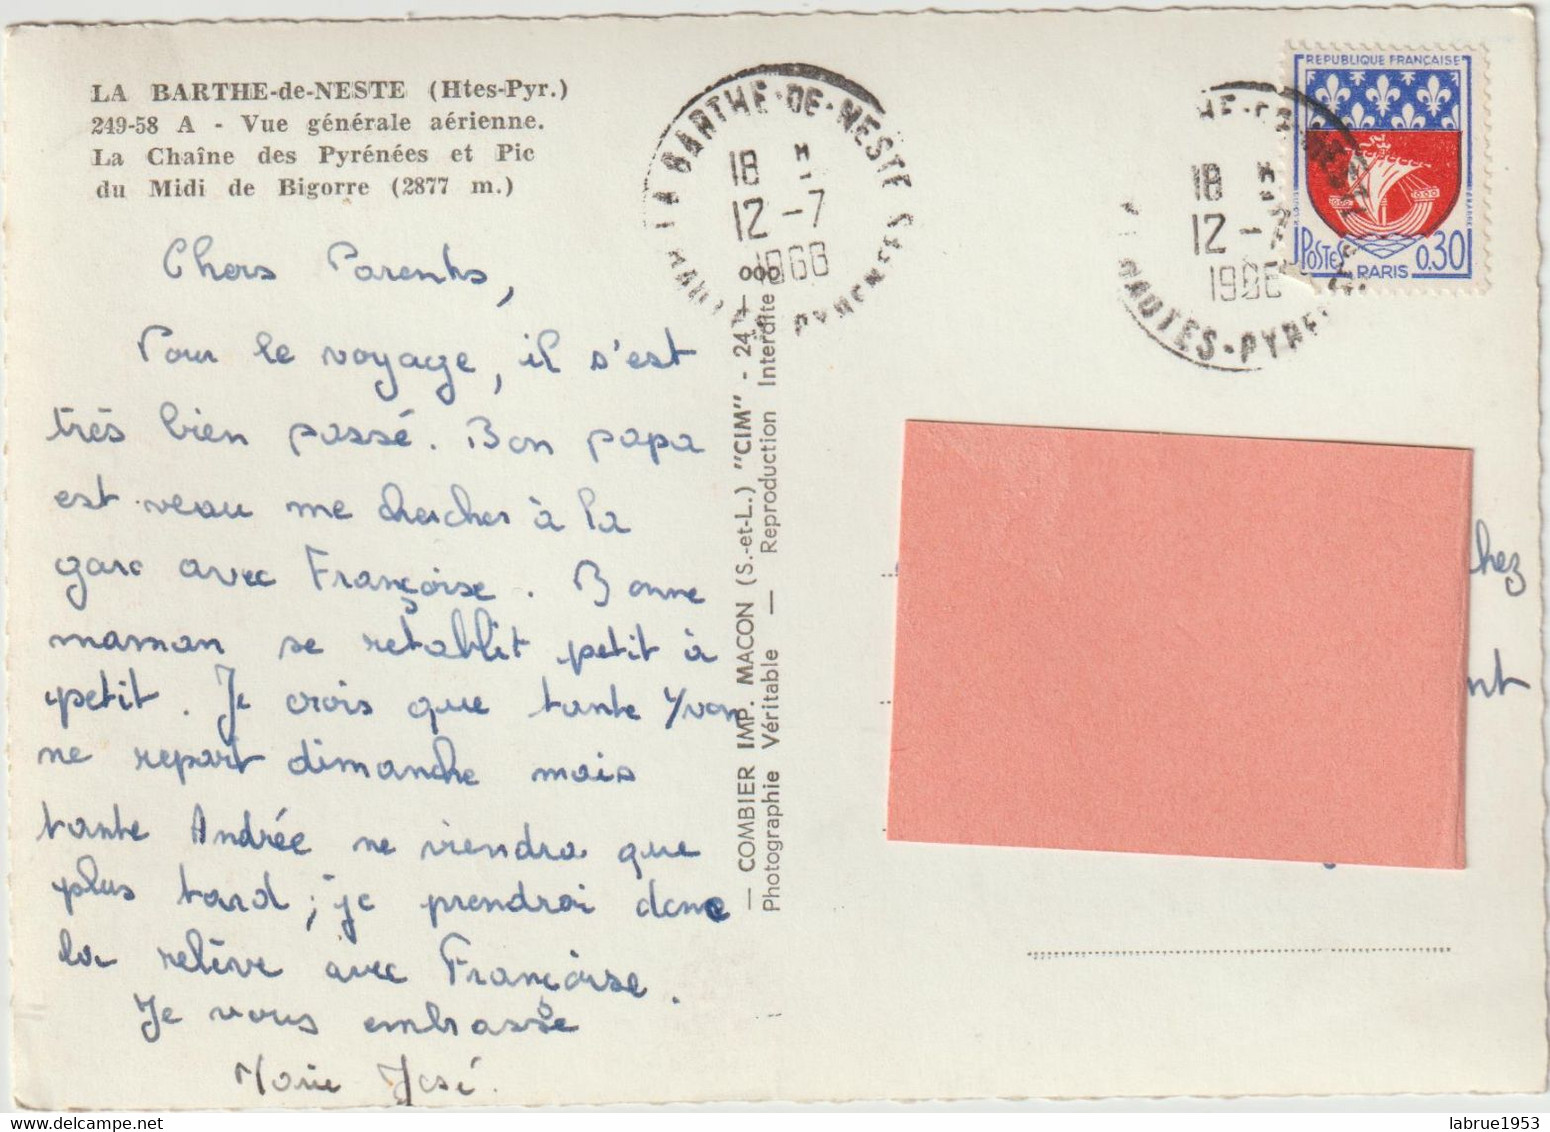 LA BARTHE-de-NESTE (Htes-Pyr.)
249-58 A - Vue générale aérienne.
La Chaîne des Pyrénées et Pic
du Midi de Bigorre (2877 m.)
Chers Parents,
Pour le voyage, il s'est
très bien passé. Bon papa
est venu me chercher à la
gare avec Françoise. Bonne
maman se retablit petit à
petit. Je crois que tante Yvon
ne repart dimanche mais
tante Andrée ne viendra que
plus tard ; je prendrai donc
la relève avec Françoise.
Je vous embrasse
Marie José.
— COMBIER IMP. MACON (S.-et-L.) "CIM" - 24
Photographie Véritable — Reproduction Interdite
LA BARTHE-DE-NESTE
18 H
12-7
1966
HAUTES-PYRENEES
18 H
12-7
1966
HAUTES-PYRE
REPUBLIQUE FRANÇAISE
POSTES
PARIS
0,30
chez
nt
labrue1953